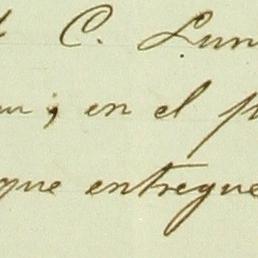 C. Lun
en el p
que entregue